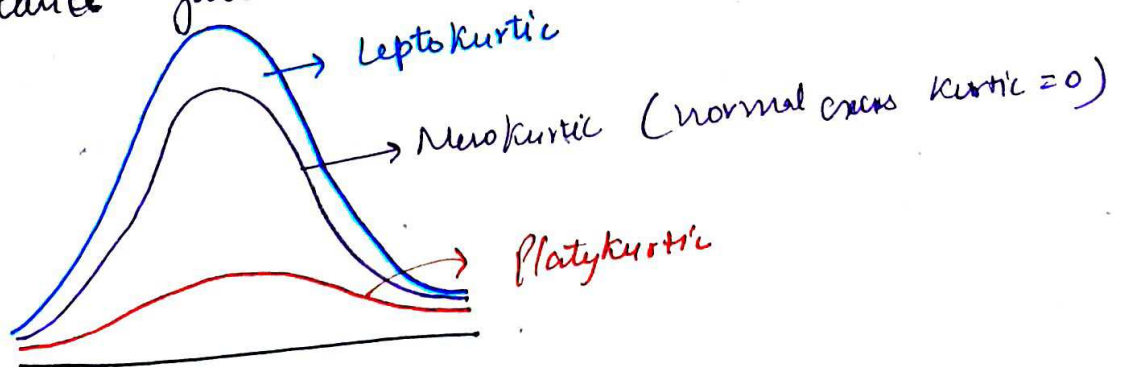 Leptokurtic
Mesokurtic (normal excess Kurtic = 0)
Platykurtic